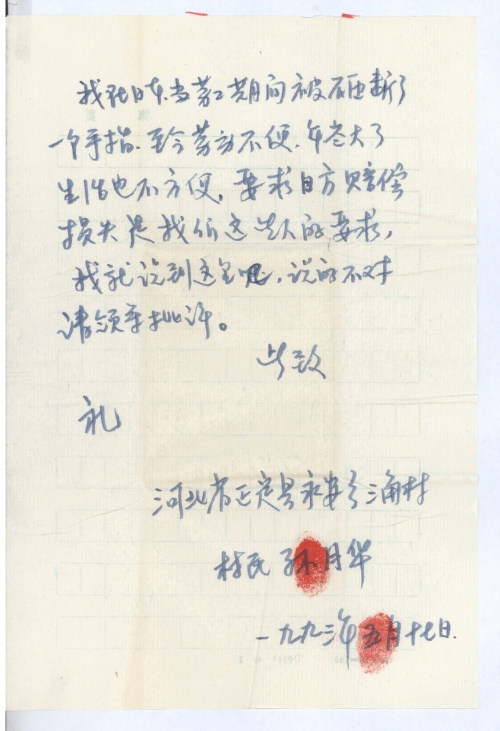 我在日本当劳工期间被石西断了
一个手指.至今劳动不便.年岁大了
生活也不方便，要求日方赔偿
损失是我们这些人的要求，
我就说到这里吧，说的不对
请领导批评。
此致
礼
河北省正定县永安乡三角村
村民 孙月华
一九九三年五月十七日.